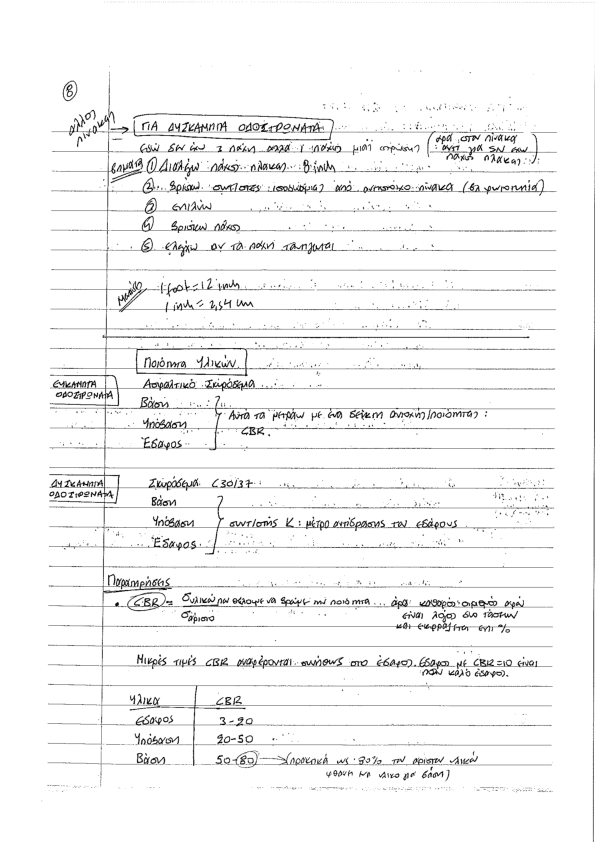 8
άλλος πίνακας → ΓΙΑ ΔΥΣΚΑΜΠΤΑ ΟΔΟΣΤΡΩΜΑΤΑ
εδώ δεν έχω 3 πάχη αλλά 1 πάχος μιας στρώσης (άρα στον πίνακα αντί για SN έχω πάχος πλάκας)
Βήματα ① Διαλέγω πάχος πλάκας 8 inch
② Βρίσκω συντ/στες ισοδυναμίας από αντίστοιχο πίνακα (βλ φωτοτυπία)
③ επιλύω
④ βρίσκω πάχος
⑤ ελέγχω αν τα πάχη ταυτίζονται
1 foot = 12 inch
1 inch = 2,54 cm
Ποιότητα Υλικών
ΕΥΚΑΜΠΤΑ ΟΔΟΣΤΡΩΜΑΤΑ
Ασφαλτικό Σκυρόδεμα
Βάση
Υπόβαση
Έδαφος
Αυτά τα μετράω με ένα δείκτη αντοχής/ποιότητας: CBR.
ΔΥΣΚΑΜΠΤΑ ΟΔΟΣΤΡΩΜΑΤΑ
Σκυρόδεμα C30/37
Βάση
Υπόβαση
Έδαφος
συντ/στής K: μέτρο αντίδρασης του εδάφους
Παρατηρήσεις
• CBR = σ υλικού που θέλουμε να βρούμε την ποιότητα ... άρα καθαρός αριθμός αφού
σ άριστο
είναι λόγος δύο τάσεων
και εκφράζεται επί %
Μικρές τιμές CBR αναφέρονται συνήθως στο έδαφος. Έδαφος με CBR=10 είναι
πολύ καλό έδαφος.
Υλικά CBR
Έδαφος 3-20
Υπόβαση 20-50
Βάση 50-80 → (πρακτικά ως 80% του άριστου υλικού